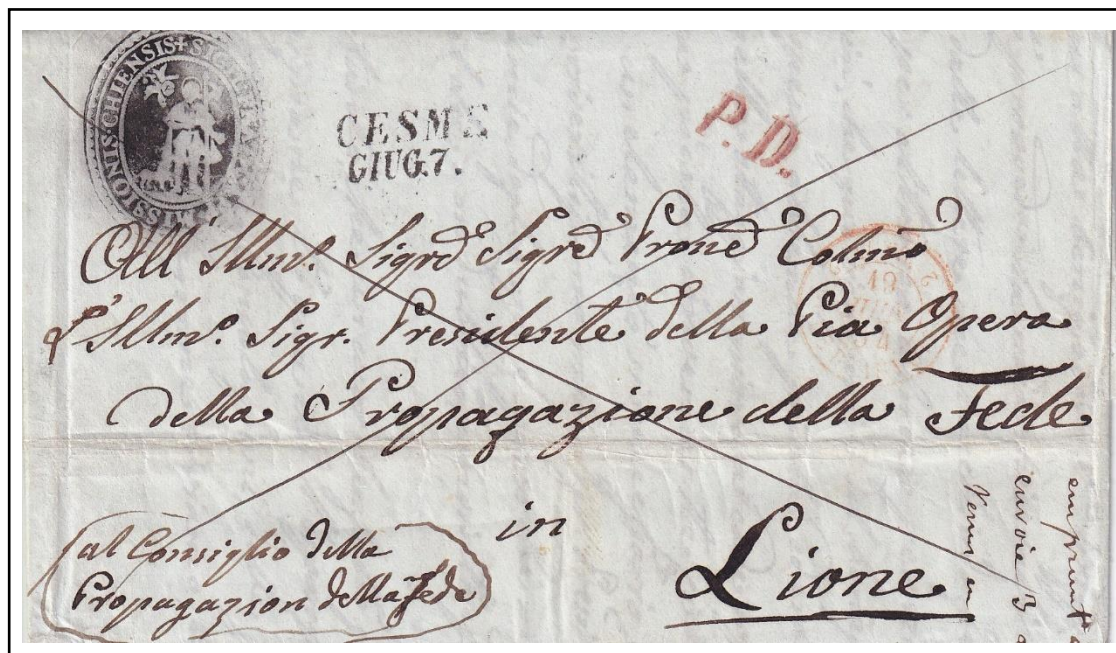 MISSIONIS·CHIENSIS+SIGILLUM
CESME
GIUG.7.
P.D.
All' Illmo. Sigre Sigre Prone Colmo
L'Illmo. Sigr. Presidente della Pia Opera
della Propagazione della Fede
in
Lione
al Consiglio della
Propagazion della Fede
19
emprunt
envoie 3